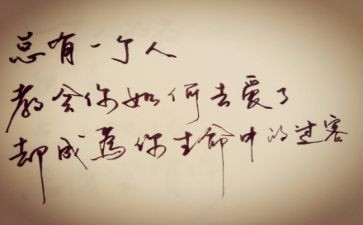 总有一个人
教会你如何去爱了
却成為你生命中的过客